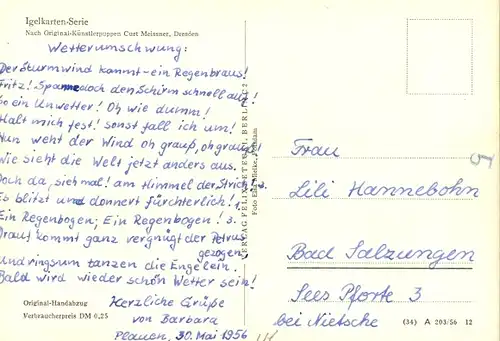 Igelkarten-Serie
Nach Original-Künstlerpuppen Curt Meissner, Dresden
Wetterumschwung:
Der Sturmwind kommt - ein Regenbraus!
Fritz! Spanne doch den Schirm schnell auf!
So ein Unwetter! Oh wie dumm!
Halt mich fest! sonst fall ich um!
Nun weht der Wind oh grauß, oh grauß!
Wie sieht die Welt jetzt anders aus.
Doch da, sieh mal! am Himmel der Strich! s.
Es blitzt und donnert fürchterlich!
Ein Regenbogen; Ein Regenbogen! s.
Drauf kommt ganz vergnügt der Petrus
gezogen.
Und ringsum tanzen die Engelein.
Bald wird wieder schön Wetter sein!
Herzliche Grüße
von Barbara
Plauen, 30. Mai 1956
Original-Handabzug
Verbraucherpreis DM 0,25
VERLAG FELIX SETECKI, BERLIN C 2
Frau
Lili Hannebohn
Bad Salzungen
Sees Pforte 3
bei Nietsche
(34) A 203/56 12